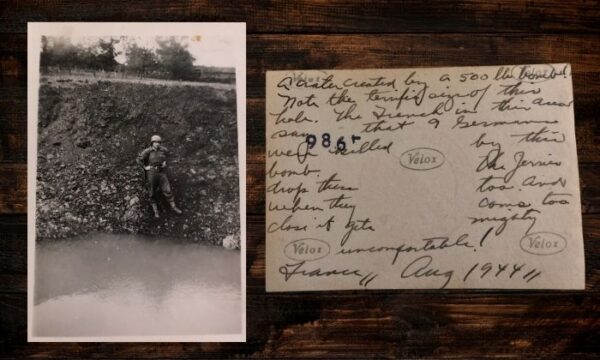 Velox
A crater created by a 500 lb bomb!
Note the terrific size of this
hole. The French in this area
say that 9 Germans
986
were killed by this
Velox
bomb. The Jerries
drop these too. and
when they come too
close it gets mighty
Velox uncomfortable! Velox
France,, Aug 1944,,